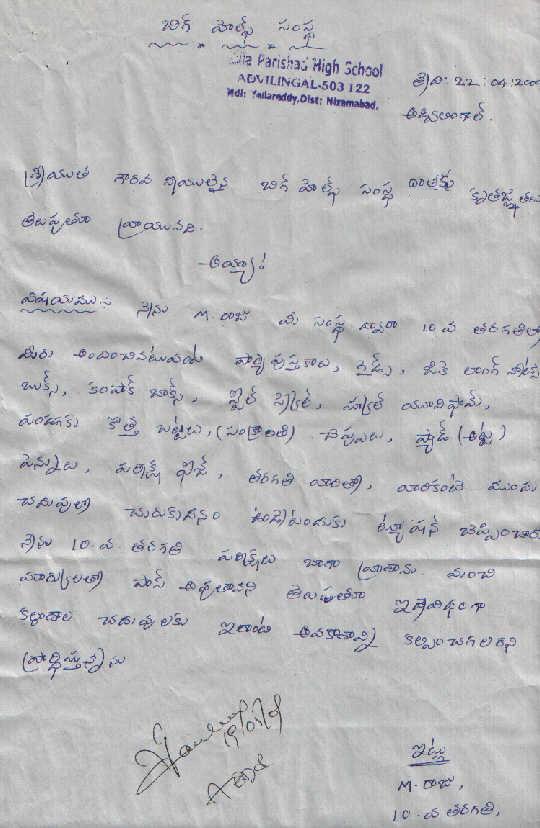 బిగ్ హెల్ప్ సంస్థ
Zilla Parishad High School
ADVILINGAL-503 122
Mdl: Yellareddy, Dist: Nizamabad.
తేది: 22:04:200
అడ్విలింగాల్.
శ్రీయుత గౌరవనీయులైన బిగ్ హెల్ప్ సంస్థ దాతకు కృతజ్ఞతలు
తెలుపుతూ వ్రాయునది.
అయ్యా!
విషయము:- నేను M. రాజు మీ సంస్థ ద్వారా 10 వ తరగతిలో
మీరు అందించినటువంటి పాఠ్యపుస్తకాలు, గైడ్స్, లాంగ్ నోట్
బుక్స్, కంపాక్ బాక్స్, స్టీల్ స్కేల్, స్కూల్ యూనిఫామ్,
పండుగకు కొత్త బట్టలు, (సంక్రాంతి) చెప్పులు, ప్యాడ్ (అట్ట)
పెన్నులు, ఫీజ్, తరగతి వారితో, వారికంటే ముందు
చదువులో చురుకుదనం ఉండేటందుకు ట్యూషన్ చెప్పించారు
నేను 10-వ తరగతి పరీక్షలు బాగా వ్రాశాను. మంచి
మార్కులతో పాస్ అవుతానని తెలుపుతూ ఇదేవిధంగా
చదువులకు ఇలాంటి అవకాశాన్ని కల్పించగలరని
ప్రార్థిస్తున్నాను
19/04/09
ఇట్లు
M. రాజు,
10-వ తరగతి,